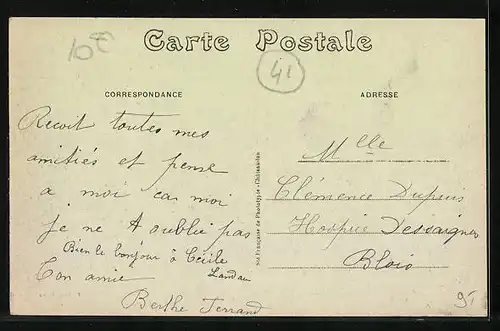 10€
Carte Postale
41
CORRESPONDANCE
ADRESSE
Recoit toutes mes
amitiés et pense
a moi car moi
je ne t oublie pas
Bien le bonjour à Cécile
Landau
Ton amie
Berthe Ferrand
Sté Française de Phototypie - Châteaudun
Mlle
Clémence Dupuis
Hospice Dessaignes
Blois